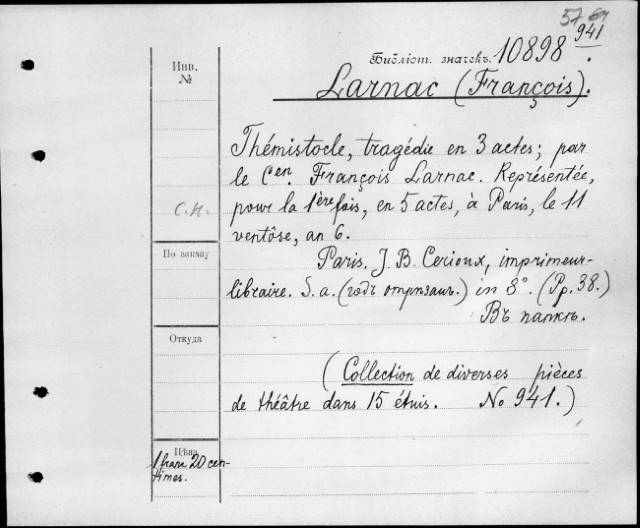 57 61
Инв. №
Библіот. значекъ. 10898 941.
Larnac (François).
Thémistocle, tragédie en 3 actes; par
le C.en François Larnac. Représentée,
C.H. pour la 1ère fois, en 5 actes, à Paris, le 11
ventôse, an 6.
По заказу
Paris. J. B. Cerioux, imprimeur-
libraire. S. a. (годъ отрѣзанъ.) in 8°. (Pp. 38.)
Въ папкѣ.
Откуда
(Collection de diverses pièces
de théâtre dans 15 étuis. No 941.)
Цѣна
1 franc 20 cen-
times.